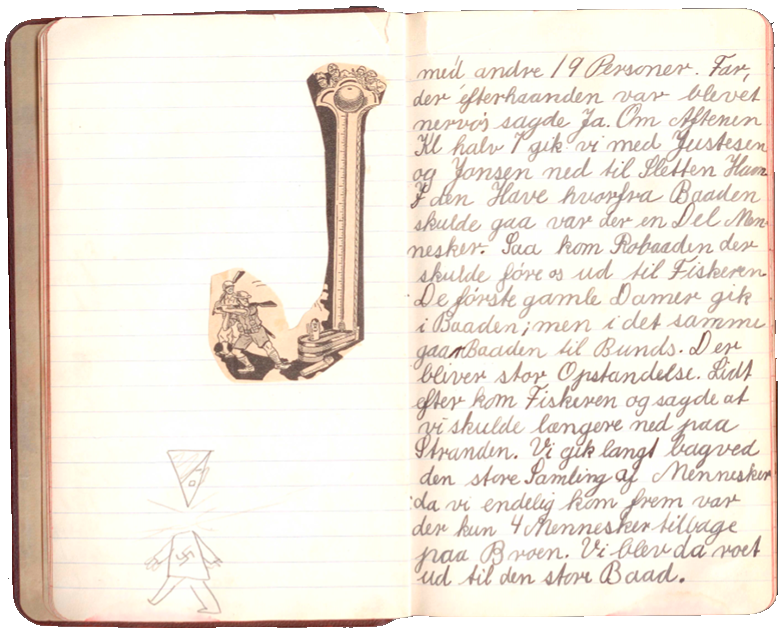 J
med andre 19 Personer. Far,
der efterhaanden var blevet
nervøs sagde Ja. Om Aftenen
Kl halv 7 gik vi med Justesen
og Jonsen ned til Sletten Havn
I den Have hvorfra Baaden
skulde gaa var der en Del Men-
nesker. Saa kom Robaaden der
skulde føre os ud til Fiskeren
De første gamle Damer gik
i Baaden; men i det samme
gaar Baaden til Bunds. Der
bliver stor Opstandelse. Lidt
efter kom Fiskeren og sagde at
vi skulde længere ned paa
Stranden. Vi gik langt bagved
den store Samling af Mennesker
da vi endelig kom frem var
der kun 4 Mennesker tilbage
paa Broen. Vi blev da roet
ud til den store Baad.